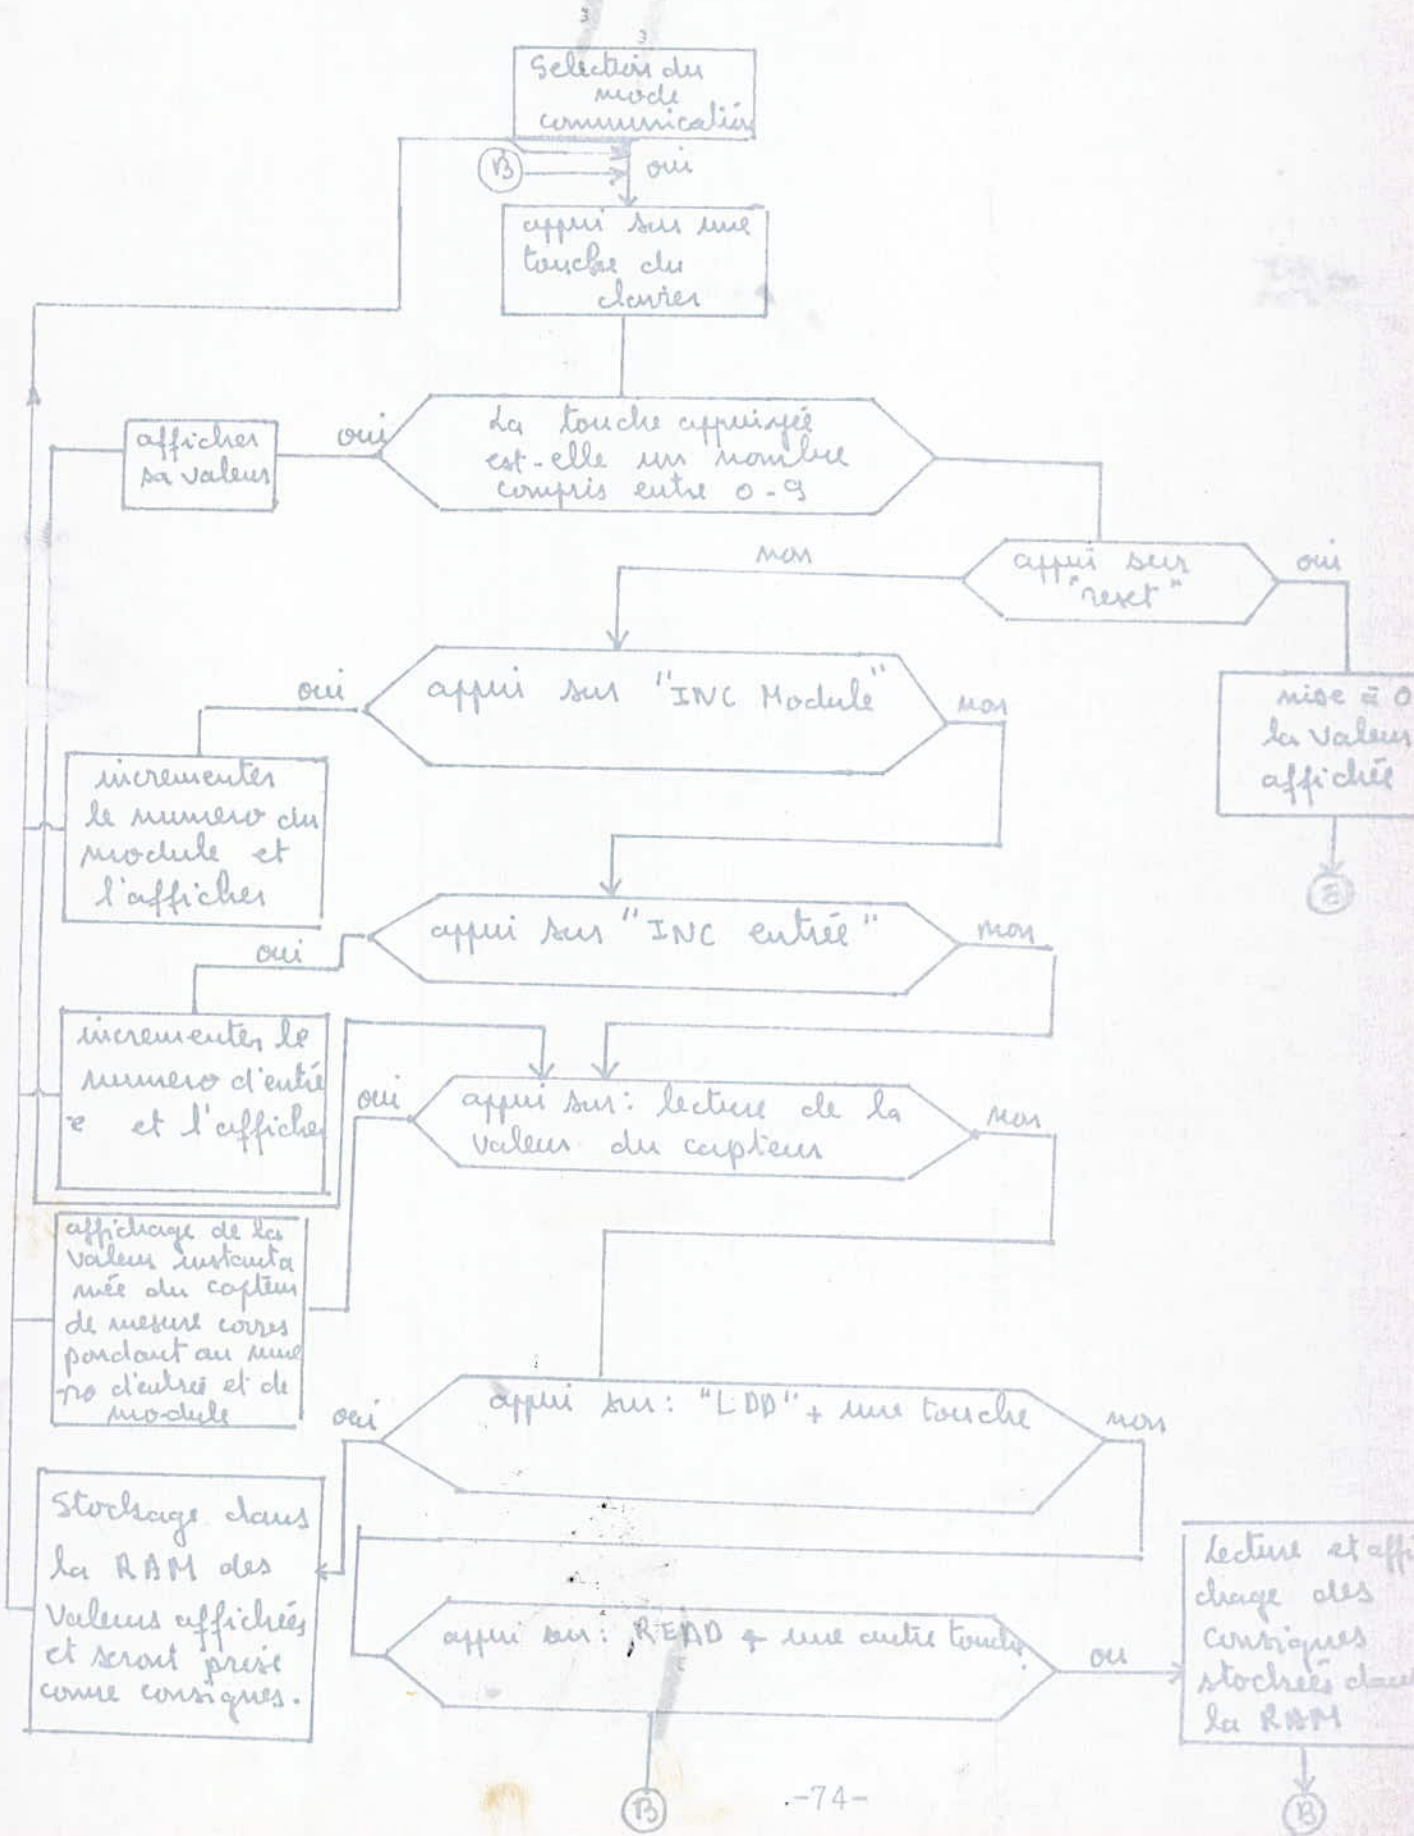 Selection du
mode
communication
B
oui
appui sur une
touche du
clavier
La touche appuiyée
est-elle un nombre
compris entre 0-9
oui
afficher
sa valeur
appui sur
"reset"
oui
non
mise à 0
la valeur
affichée
appui sur "INC Module"
oui
non
incrementer
le numero du
module et
l'afficher
appui sur "INC entrée"
oui
non
incrementer le
numero d'entré
e et l'afficher
appui sur: lecture de la
valeur du capteur
oui
non
affichage de la
valeur instanta
née du capteur
de mesure corres
pondant au nume
-ro d'entrée et de
module
appui sur: "LDD" + une touche
oui
non
Stockage dans
la RAM des
valeurs affichées
et seront prise
comme consignes.
appui sur: READ + une autre touche
oui
Lecture et affi
chage des
consignes
stockées dans
la RAM
B
B
-74-